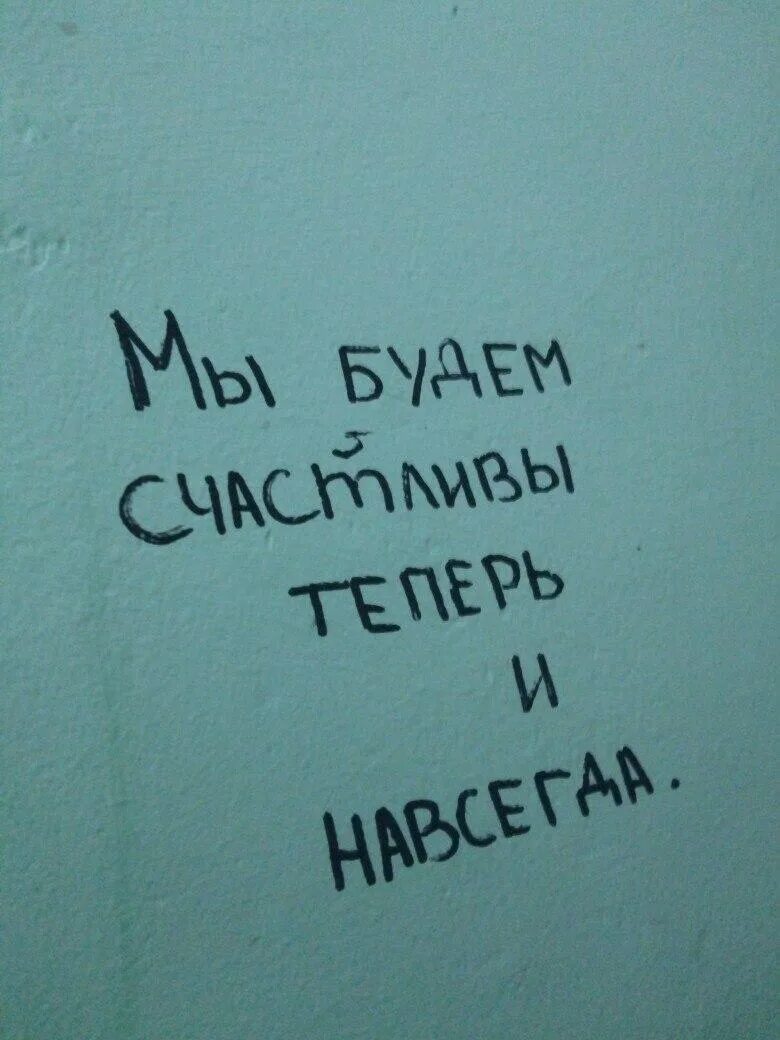 Мы будем
счастливы
теперь
и
навсегда.